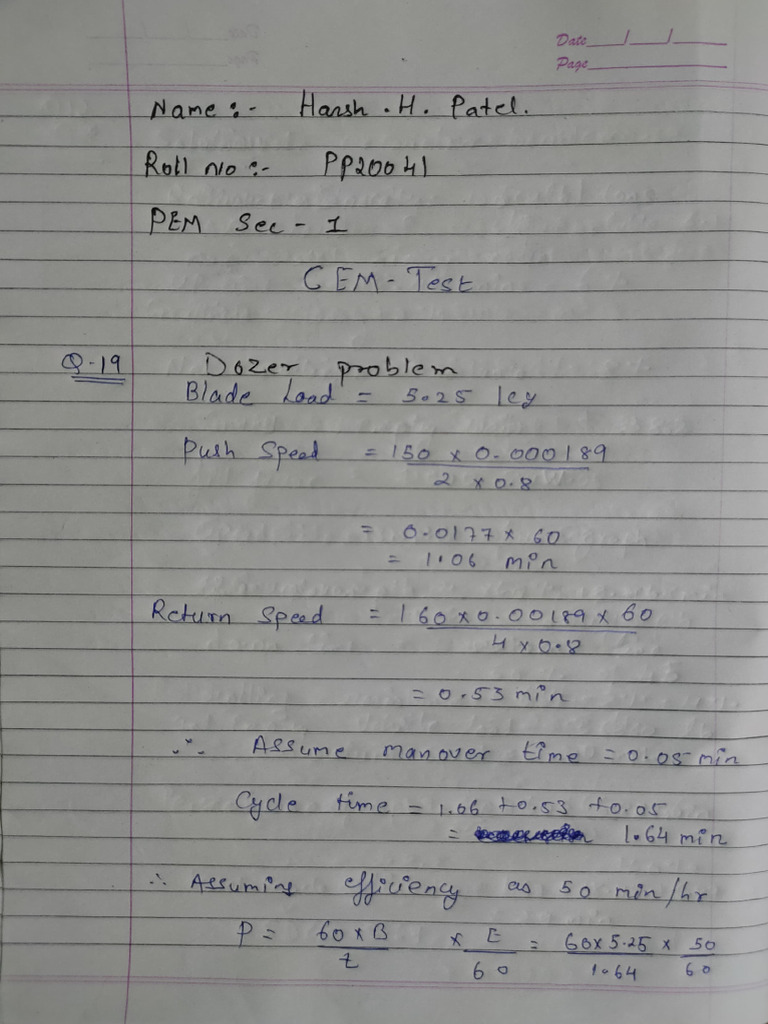 Date / /
Page
Name :- Harsh . H. Patel.
Roll no :- PP20041
PEM Sec - 1
CEM - Test
Q-19 Dozer problem
Blade Load = 5.25 lcy
Push Speed = 150 x 0.000189
2 x 0.8
= 0.0177 x 60
= 1.06 min
Return Speed = 160 x 0.00189 x 60
4 x 0.8
= 0.53 min
∴ Assume manover time = 0.05 min
Cycle time = 1.06 + 0.53 + 0.05
= 1.64 min
∴ Assuming efficiency as 50 min/hr
P = 60 x B x E = 60 x 5.25 x 50
t 60 1.64 60